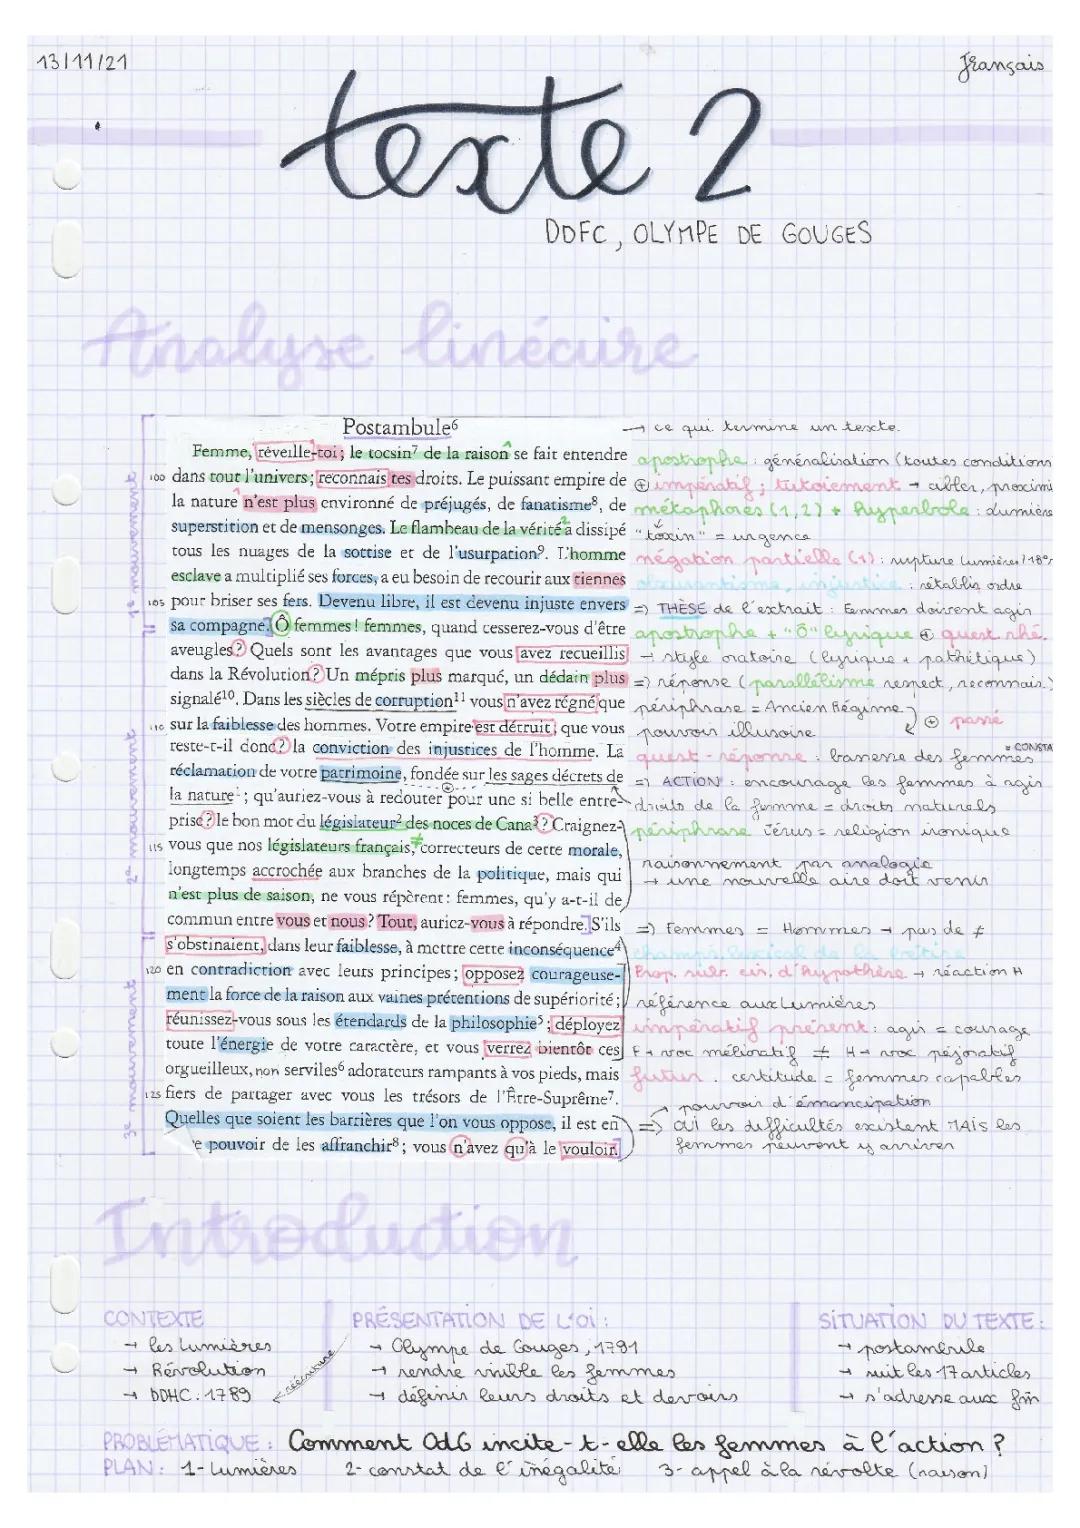 13/11/21
Français
texte 2
DDFC, OLYMPE DE GOUGES
Analyse linéaire
Postambule⁶
→ ce qui termine un texte.
Femme, réveille-toi ; le tocsin⁷ de la raison se fait entendre
100 dans tout l'univers ; reconnais tes droits. Le puissant empire de
la nature n'est plus environné de préjugés, de fanatisme⁸, de
superstition et de mensonges. Le flambeau de la vérité a dissipé
tous les nuages de la sottise et de l'usurpation⁹. L'homme
esclave a multiplié ses forces, a eu besoin de recourir aux tiennes
105 pour briser ses fers. Devenu libre, il est devenu injuste envers
sa compagne. Ô femmes ! femmes, quand cesserez-vous d'être
aveugles ? Quels sont les avantages que vous avez recueillis
dans la Révolution ? Un mépris plus marqué, un dédain plus
signalé¹⁰. Dans les siècles de corruption¹¹ vous n'avez régné que
110 sur la faiblesse des hommes. Votre empire est détruit ; que vous
reste-t-il donc ? la conviction des injustices de l'homme. La
réclamation de votre patrimoine, fondée sur les sages décrets de
la nature ; qu'auriez-vous à redouter pour une si belle entre-
prise ? le bon mot du législateur² des noces de Cana³ ? Craignez-
115 vous que nos législateurs français, correcteurs de cette morale,
longtemps accrochée aux branches de la politique, mais qui
n'est plus de saison, ne vous répètent : femmes, qu'y a-t-il de
commun entre vous et nous ? Tout, auriez-vous à répondre. S'ils
s'obstinaient, dans leur faiblesse, à mettre cette inconséquence⁴
120 en contradiction avec leurs principes ; opposez courageuse-
ment la force de la raison aux vaines prétentions de supériorité ;
réunissez-vous sous les étendards de la philosophie⁵ ; déployez
toute l'énergie de votre caractère, et vous verrez bientôt ces
orgueilleux, non serviles⁶ adorateurs rampants à vos pieds, mais
125 fiers de partager avec vous les trésors de l'Être-Suprême⁷.
Quelles que soient les barrières que l'on vous oppose, il est en
e pouvoir de les affranchir⁸ ; vous n'avez qu'à le vouloir.
1e mouvement
2e mouvement
3e mouvement
apostrophe : généralisation (toutes conditions
⊕ impératif ; tutoiement → cibler, proximi
métaphores (1,2) + hyperbole : lumière
"toxin" = urgence
négation partielle (1) : rupture lumières/18e
obscurantisme, injustice : rétablir ordre
=) THÈSE de l'extrait : femmes doivent agir
apostrophe + "ô" lyrique ⊕ quest rhé.
→ style oratoire (lyrique + pathétique)
=) réponse (parallélisme respect, reconnais.)
périphrase = Ancien Régime
pouvoir illusoire
⊕ passé
quest-réponse : bassesse des femmes
= CONSTA
=) ACTION : encourage les femmes à agir
droits de la femme = droits naturels
périphrase Jésus = religion ironique
raisonnement par analogie
→ une nouvelle aire doit venir
=) Femmes = Hommes → pas de ≠
champs lexical de la
Prop. sub. cir. d'hypothèse → réaction H
référence aux Lumières
impératif présent : agir = courage
F → voc mélioratif ≠ H → voc péjoratif
futur : certitude = femmes capables
→ pouvoir d'émancipation
=) OUI les difficultés existent MAIS les
femmes peuvent y arriver
Introduction
CONTEXTE
→ les Lumières
→ Révolution
→ DDHC : 1789
réécriture
PRÉSENTATION DE L'OI :
→ Olympe de Gouges, 1791
→ rendre visible les femmes
→ définir leurs droits et devoirs
SITUATION DU TEXTE :
→ postambule
→ suit les 17 articles
→ s'adresse aux fm
PROBLÉMATIQUE : Comment OdG incite-t-elle les femmes à l'action ?
PLAN : 1- Lumières 2- constat de l'inégalité 3- appel à la révolte (raison)